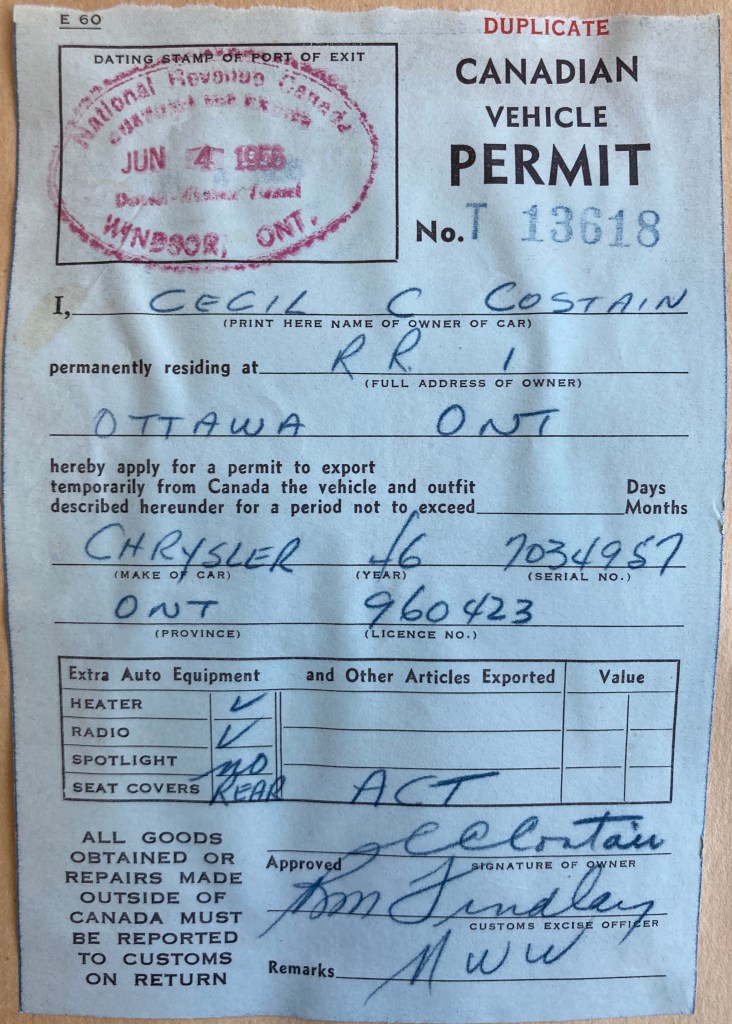 E 60
DUPLICATE
DATING STAMP OF PORT OF EXIT
National Revenue Canada
CUSTOMS AND EXCISE
JUN 4 1956
Detroit-Windsor Tunnel
WINDSOR, ONT.
CANADIAN
VEHICLE
PERMIT
No. T 13618
I, CECIL C COSTAIN
(PRINT HERE NAME OF OWNER OF CAR)
permanently residing at R R. 1
(FULL ADDRESS OF OWNER)
OTTAWA ONT
hereby apply for a permit to export
temporarily from Canada the vehicle and outfit Days
described hereunder for a period not to exceed Months
CHRYSLER 46 7034957
(MAKE OF CAR) (YEAR) (SERIAL NO.)
ONT 960423
(PROVINCE) (LICENCE NO.)
Extra Auto Equipment and Other Articles Exported Value
HEATER ✓
RADIO ✓
SPOTLIGHT no
SEAT COVERS REAR ACT
ALL GOODS
OBTAINED OR
REPAIRS MADE
OUTSIDE OF
CANADA MUST
BE REPORTED
TO CUSTOMS
ON RETURN
CCCostain
Approved SIGNATURE OF OWNER
Findlay
CUSTOMS EXCISE OFFICER
Remarks